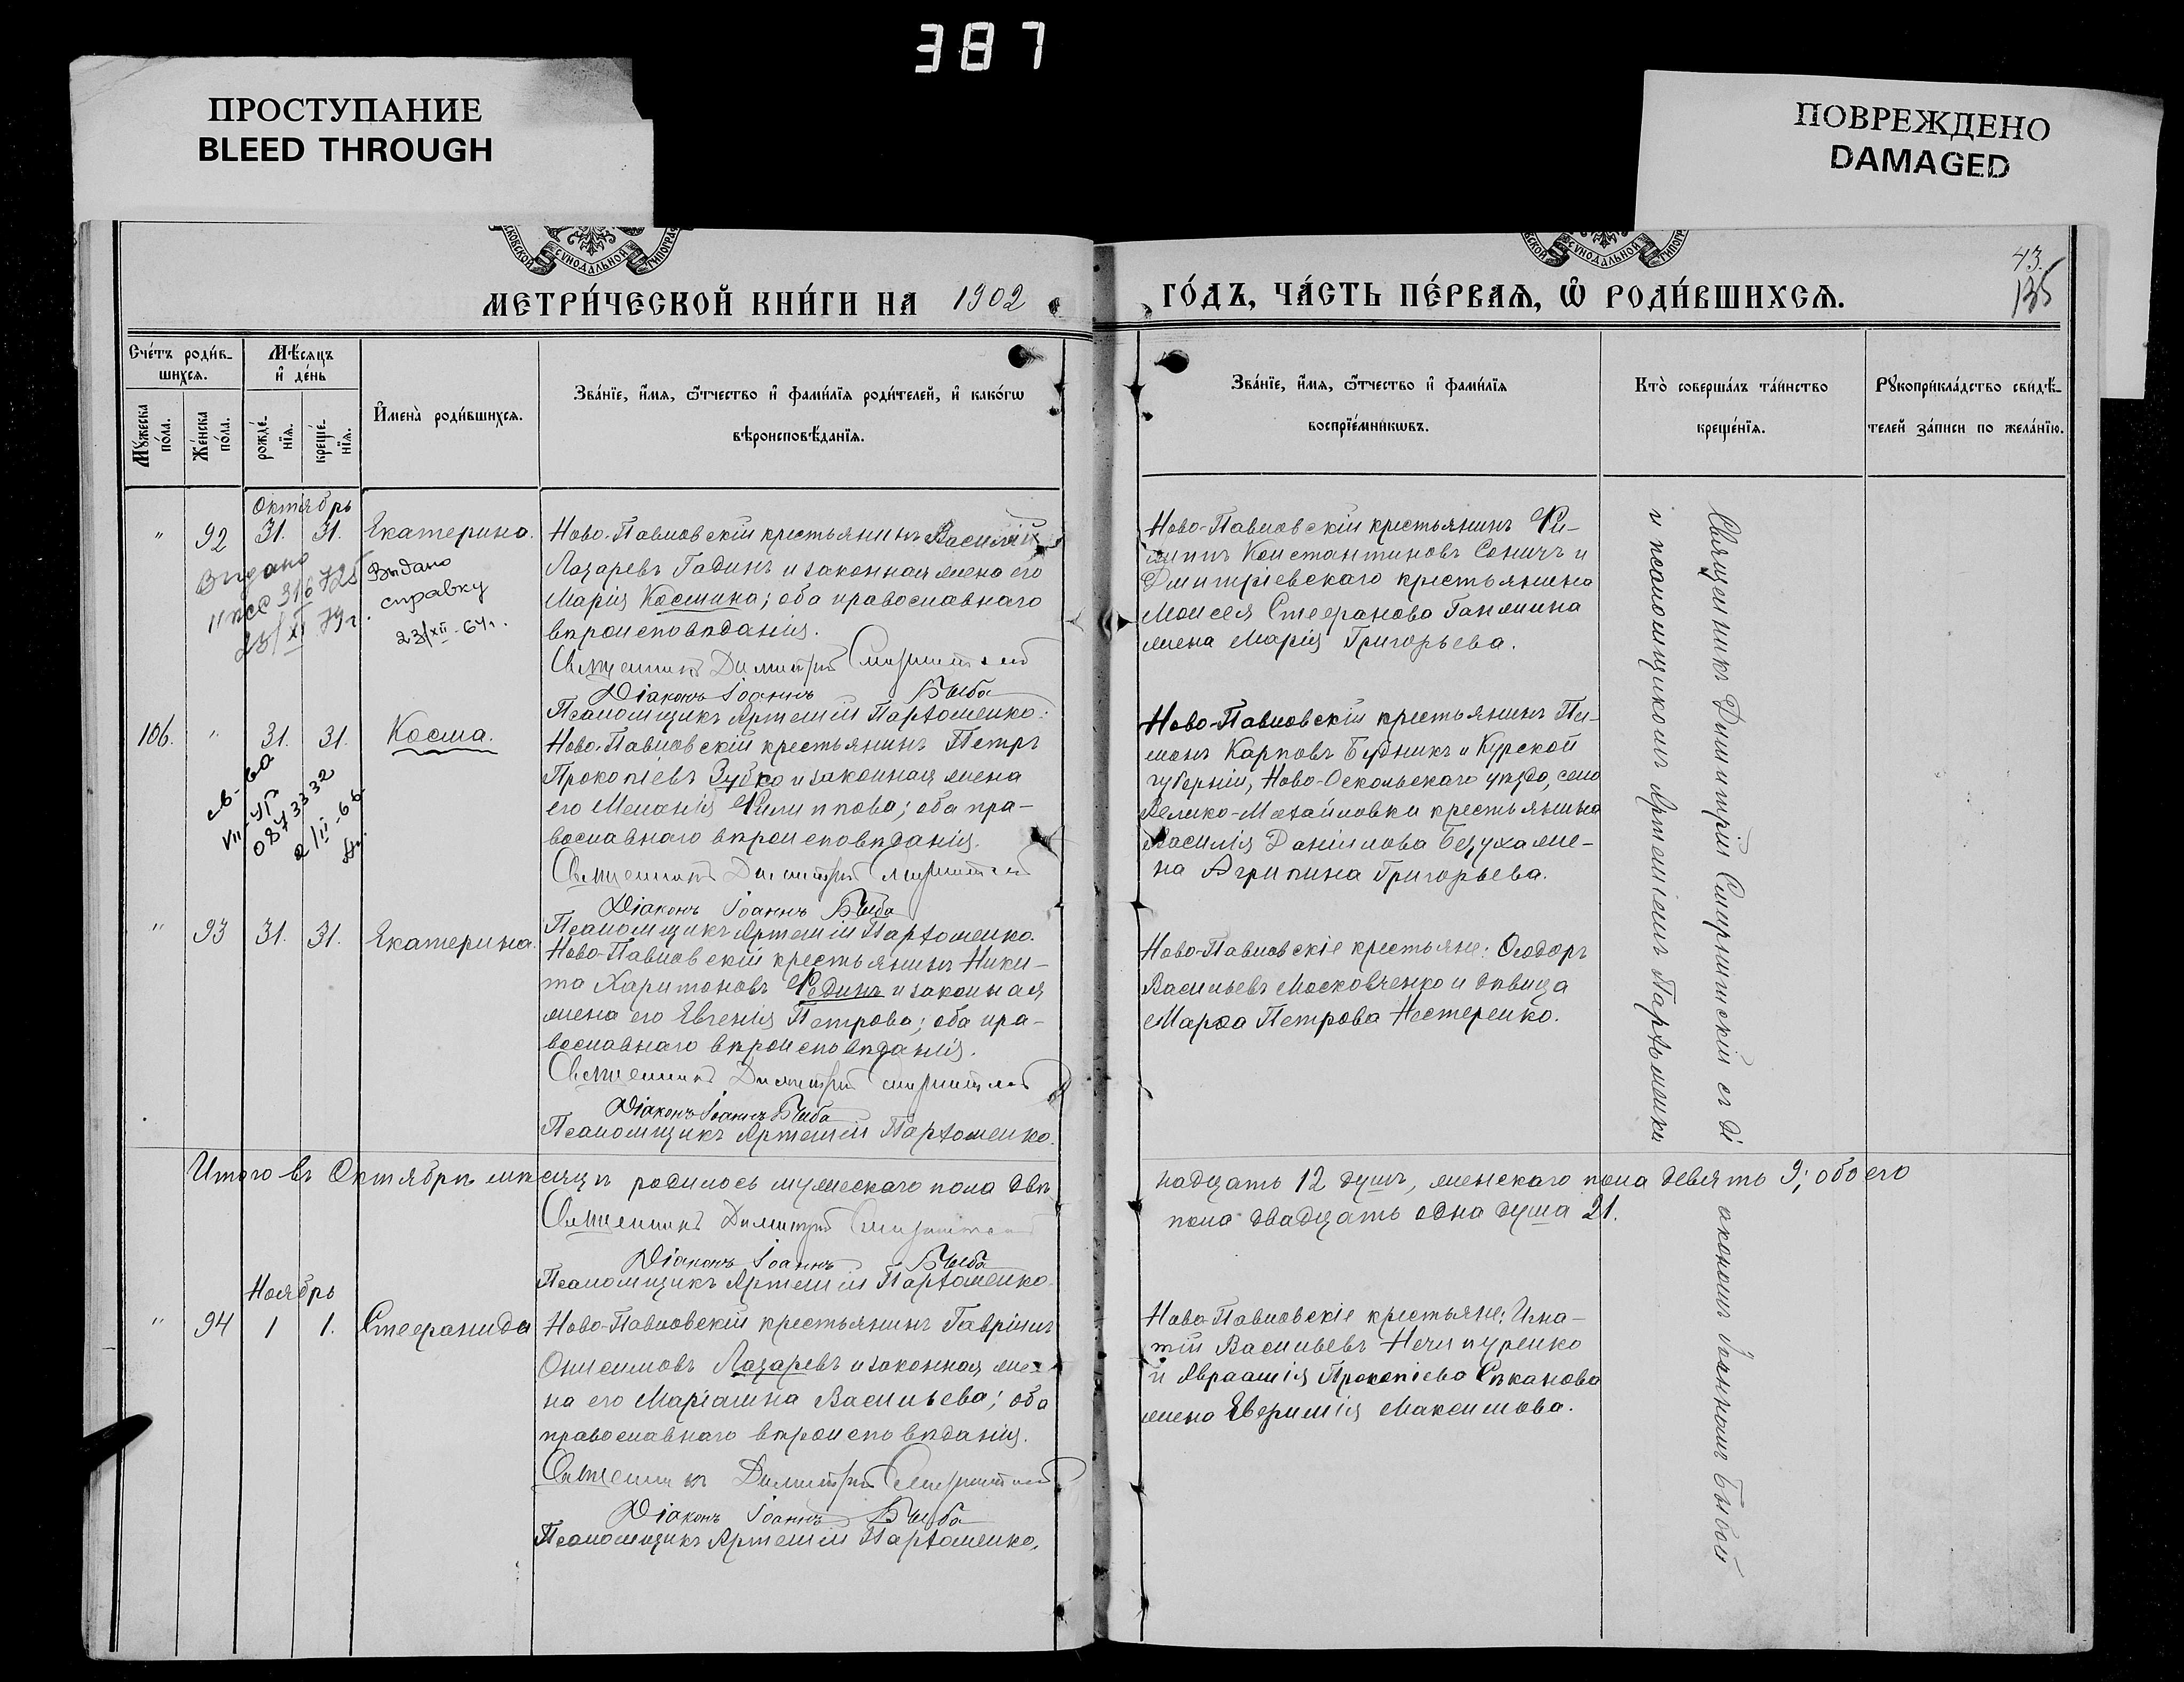 387
ПРОСТУПАНИЕ
BLEED THROUGH
ПОВРЕЖДЕНО
DAMAGED
МЕТРИ́ЧЕСКОЙ КНИ́ГИ НА 1902
ГО́ДЪ, ЧА́СТЬ ПЕ́РВАѦ, Ѡ҆ РОДИ́ВШИХСѦ.
43.
135
Сче́тъ роди́в-
шихсѧ.
Мѣ́сѧцъ
и҆ де́нь
Мꙋ́жеска
по́ла.
Же́нска
по́ла.
рожде́-
нїѧ.
креще́-
нїѧ.
И҆мена̀ роди́вшихсѧ.
Зва́нїе, и҆́мѧ, ѻ҆́тчество и҆ фами́лїѧ роди́телей, и҆ како́гѡ
вѣроисповѣ́данїѧ.
Зва́нїе, и҆́мѧ, ѻ҆́тчество и҆ фами́лїѧ
воспрїе́мникѡвъ.
Кто̀ соверша́лъ та́инство
креще́нїѧ.
Рꙋкоприкла́дство свидѣ́-
телей за́писи по жела́нїю.
Октябрь
" 92 31. 31. Екатерина.
Ново-Павловскій крестьянинъ Василій
Лазаревъ Гадинъ и законная жена его
Марія Космина; оба православнаго
вѣроисповѣданія.
Священникъ Димитрій Смирнитскій
Діаконъ Іоаннъ Быба
Псаломщикъ Артемій Пархоменко.
Выдано
316725
23/XI 79г.
Выдано
справку
23/XII-64г.
Ново-Павловскій крестьянинъ Фи-
липпъ Константиновъ Соничъ и
Дмитріевскаго крестьянина
Моисея Стефанова Ганжина
жена Марія Григорьева.
106. " 31. 31. Косма.
Ново-Павловскій крестьянинъ Петръ
Прокопіевъ Зубко и законная жена
его Меланія Филиппова; оба пра-
вославнаго вѣроисповѣданія.
Священникъ Димитрій Смирнитскій
Діаконъ Іоаннъ Быба
Псаломщикъ Артемій Пархоменко.
св-ва
VII-УР
0873332
2/II-66.
Ново-Павловскій крестьянинъ Пи-
менъ Карповъ Будникъ и Курской
губерніи, Ново-Оскольскаго уѣзда, села
Велико-Михайловки крестьянина
Василія Даніилова Безуха же-
на Агрипина Григорьева.
" 93 31. 31. Екатерина.
Ново-Павловскій крестьянинъ Ники-
та Харитоновъ Фединъ и законная
жена его Евгенія Петрова; оба пра-
вославнаго вѣроисповѣданія.
Священникъ Димитрій Смирнитскій
Діаконъ Іоаннъ Быба
Псаломщикъ Артемій Пархоменко.
Ново-Павловскіе крестьяне: Ѳеодоръ
Васильевъ Московченко и дѣвица
Марѳа Петрова Нестеренко.
Итого въ Октябрѣ мѣсяцѣ родилось мужескаго пола двѣ
надцать 12 душъ, женскаго пола девять 9; обоего
пола двадцать одна душа 21.
Священникъ Димитрій Смирнитскій
Діаконъ Іоаннъ Быба
Псаломщикъ Артемій Пархоменко.
Ноябрь
" 94 1 1. Стефанида
Ново-Павловскій крестьянинъ Гавріилъ
Онисимовъ Лазаревъ и законная же-
на его Маріамна Васильева; оба
православнаго вѣроисповѣданія.
Священникъ Димитрій Смирнитскій
Діаконъ Іоаннъ Быба
Псаломщикъ Артемій Пархоменко.
Ново-Павловскіе крестьяне: Игна-
тій Васильевъ Нечипуренко
и Авраамія Прокопіева Сѣканова
жена Евфимія Максимова.
Священникъ Димитрій Смирнитскій съ Ді
акономъ Іоанномъ Быбой
и псаломщикомъ Артеміемъ Пархоменко